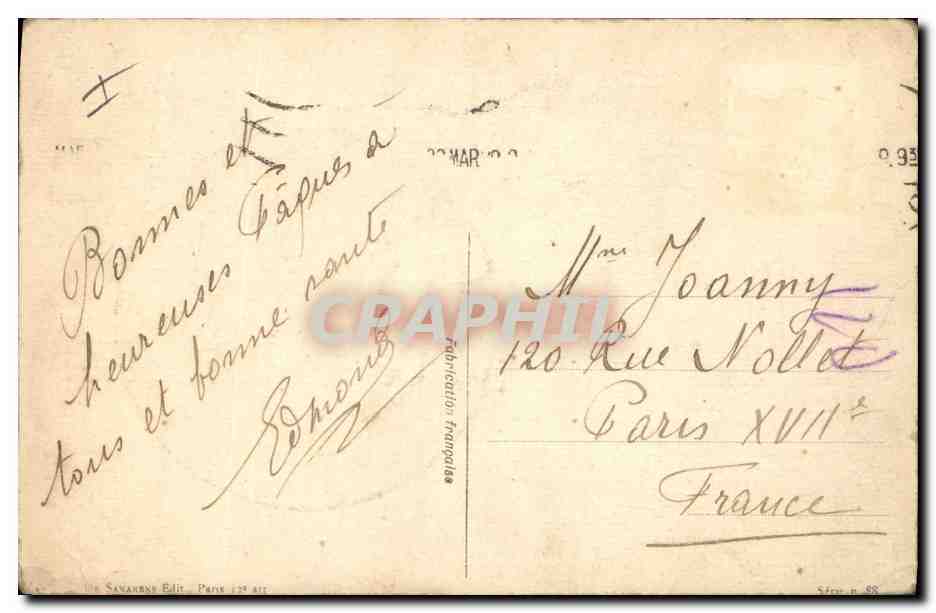 I
Bonnes et
heureuses Pâques à
tous et bonne santé
Edmond
MAR
Mme Joanny
120 Rue Nollet
Paris XVIIe
France
CRAPHIL
Fabrication française
Edit. Paris 12e arr
Série n. 88